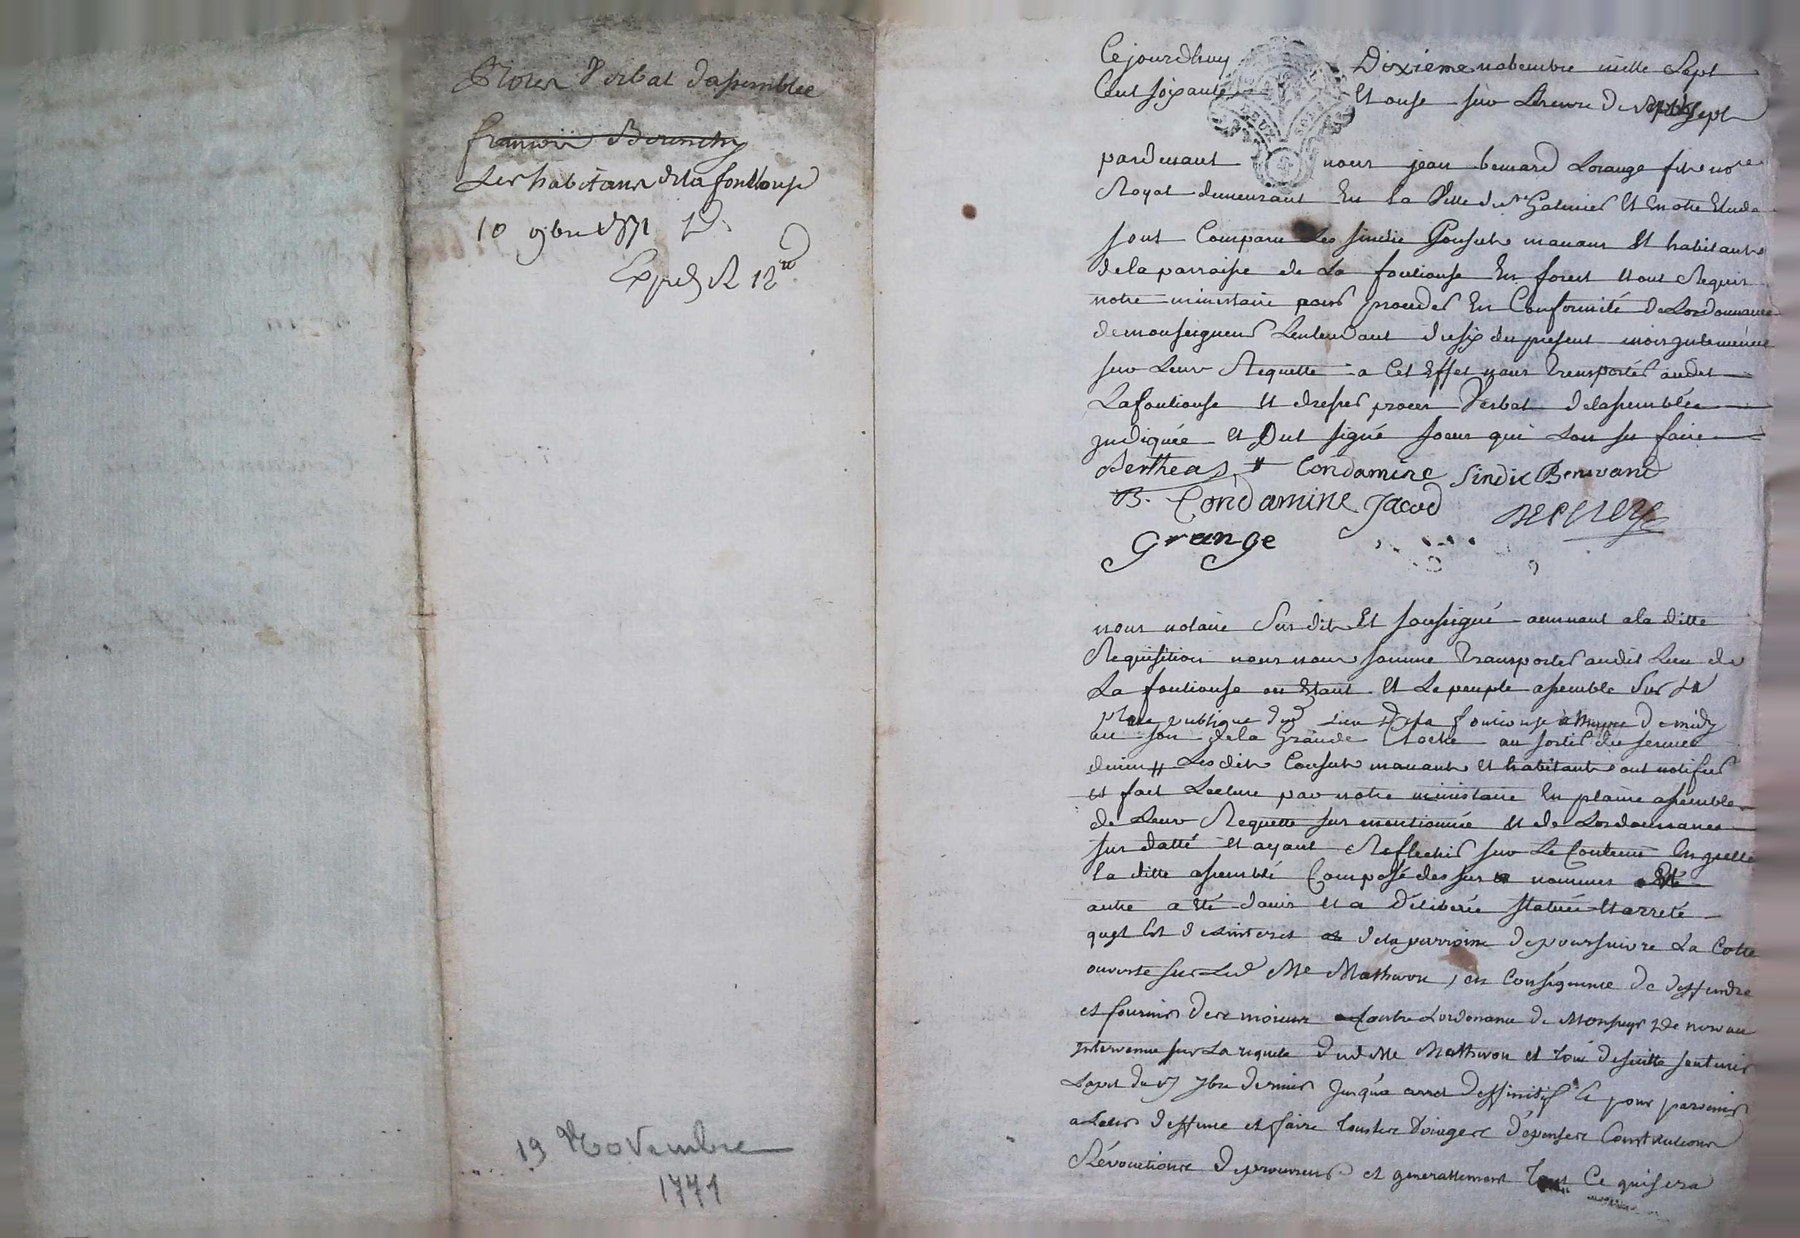 Proces Verbal dassemblée
Les habitans de la fouillouse
10 9bre 1771
Exped. R 12
13 Novembre
1771
Cejourdhuy Dixieme nobembre mille Sept
Cent soixante Et onse sur Lheure de sept
pardevant nous jean bernard Lorange fils no.re
Royal demeurant En La Ville de St Galmier Et En notre Etude
sont Comparu Les sindic Consuls manans Et habitants
de la parroisse de La fouliouse En forest nous Requis
notre ministaire pour proceder En Conformité De Lordonnance
de monseigneur Lintendant du six du present mois
sur Leur Requette a Cet Effet nous Transporter audit
Lafouliouse Et dresser proces Verbal delassemblée
indiquée Et Ont signé Ceux qui Lon su faire
Bertheas Condamine Sindic Benivand
B. Condamine Jacod
Grange
nous notaire Sus dit Et soussigné a la ditte
Requisition nous nous somme Transporter audit Lieu de
La fouliouse ou Etant Et Le peuple assemblé Sur La
place publique dud lieu De la fouliouse a lheure De midy
au son de la Grande Cloche au sortir du service
divin Lesdits Consuls manants Et habitants ont notifier
et fait Lecture par notre ministaire En plaine assemblée
de Leur Requette sus mentionnée et de Lordonnance
sus datté Et ayant Reflechis sur Le Contenu
la ditte assemblé Composé des sus nommés
autre a Eté davis Et a Déliberée statuée Et arreté
quil Est de Linteret de la parroisse de poursuivre La Cotte
ouverte sur Led Me Mathevon, en Conséquence de deffendre
et fournir des moiens Contre Lordonance de Monseigr De nouveau
intervenue sur La requete dud Me Mathevon et de suitte soutenir
du 17 7bre dernier jusqua arret deffinitif Et pour parvenir
a Leur deffence et faire Constitutions
Révocations de procureurs et generallement Tout Ce qui sera